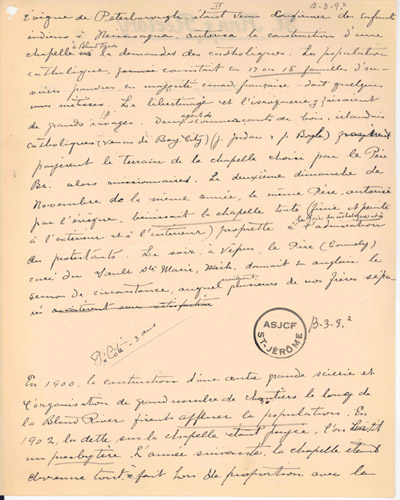 II
B-3-9.2
évêque de Peterborough étant venu confirmer des enfants
indiens à Mississagua, autorisa la construction d'une
à Blind River
chapelle sur la demande des catholiques. La population
catholique, formée consistait en 17 ou 18 familles d'ou-
vriers pauvres, en majorité canad. française, dont quelques
uns métisses. Le libertinage et l'ivrognerie y faisaient
de grands ravages. Deux commerçants de bois, irlandais
catholiques (venus de Bay City) (J. Jordan & P. Boyle)
payèrent le terrain de la chapelle choisi par le Père
Br. alors missionnaire. Le deuxième dimanche de
Novembre de la même année, le même Père, autorisé
par l'évêque, bénissait la chapelle toute (finie et peinte
à l'intérieur et à l'extérieur) propriété à l'admiration
des protestants. Le soir, à Vêpres, le Père (Connolly)
curé du Sault Ste Marie, Mich. donnait en anglais le
sermon de circonstance, auquel plusieurs de nos frères sépa-
rés assistèrent avec satisfaction
P. Côté - 3 ans
ASJCF
ST-JÉRÔME
B-3-9.2
En 1900, la construction d'une autre grande scierie et
l'organisation de grand nombre de chantiers le long de
la Blind River firent affluer la population. En
1902, la dette sur la chapelle étant payée, l'on bâtit
un presbytère. L'année suivante, la chapelle étant
devenue tout à fait hors de proportion avec la